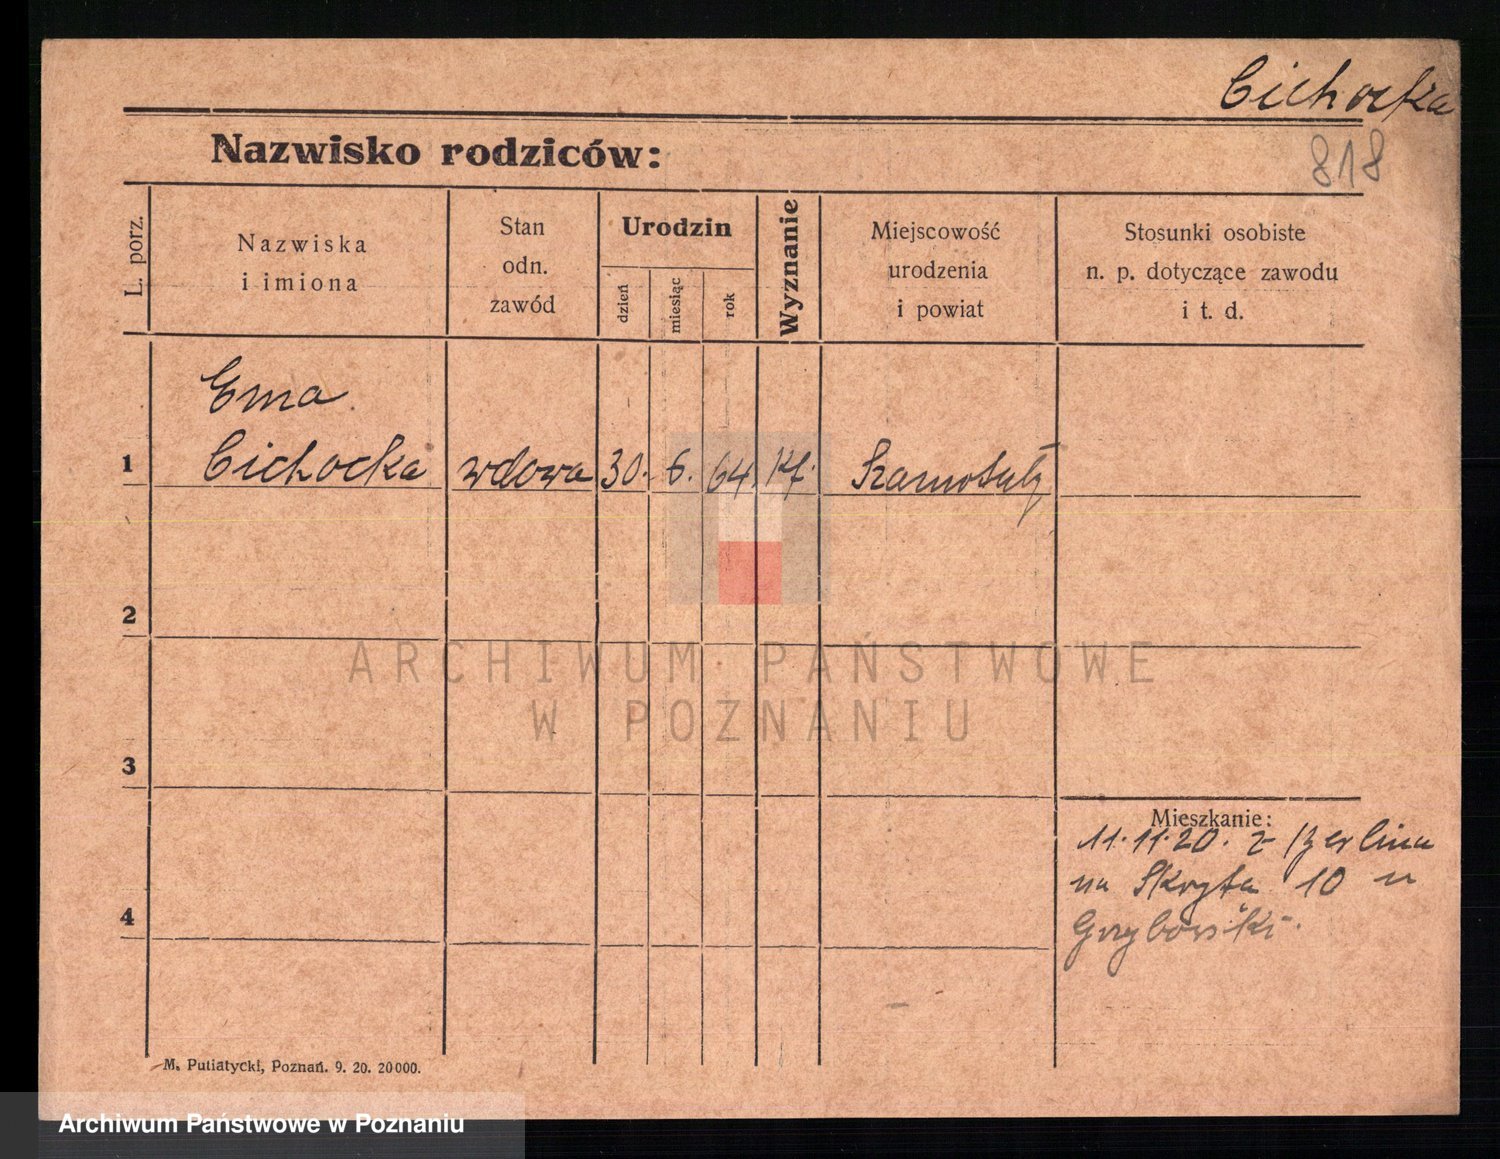 Cichocka
818
Nazwisko rodziców:
L. porz.
Nazwiska
i imiona
Stan
odn.
zawód
Urodzin
dzień
miesiąc
rok
Wyznanie
Miejscowość
urodzenia
i powiat
Stosunki osobiste
n. p. dotyczące zawodu
i t. d.
Ema
1 Cichocka wdowa 30. 6. 64. Kf. Szamotuły
2
ARCHIWUM PAŃSTWOWE
W POZNANIU
3
Mieszkanie:
11.11.20. z Berlina
na Skryta 10 u
4
Grzyborski.
M. Putiatycki, Poznań. 9. 20. 20000.
Archiwum Państwowe w Poznaniu